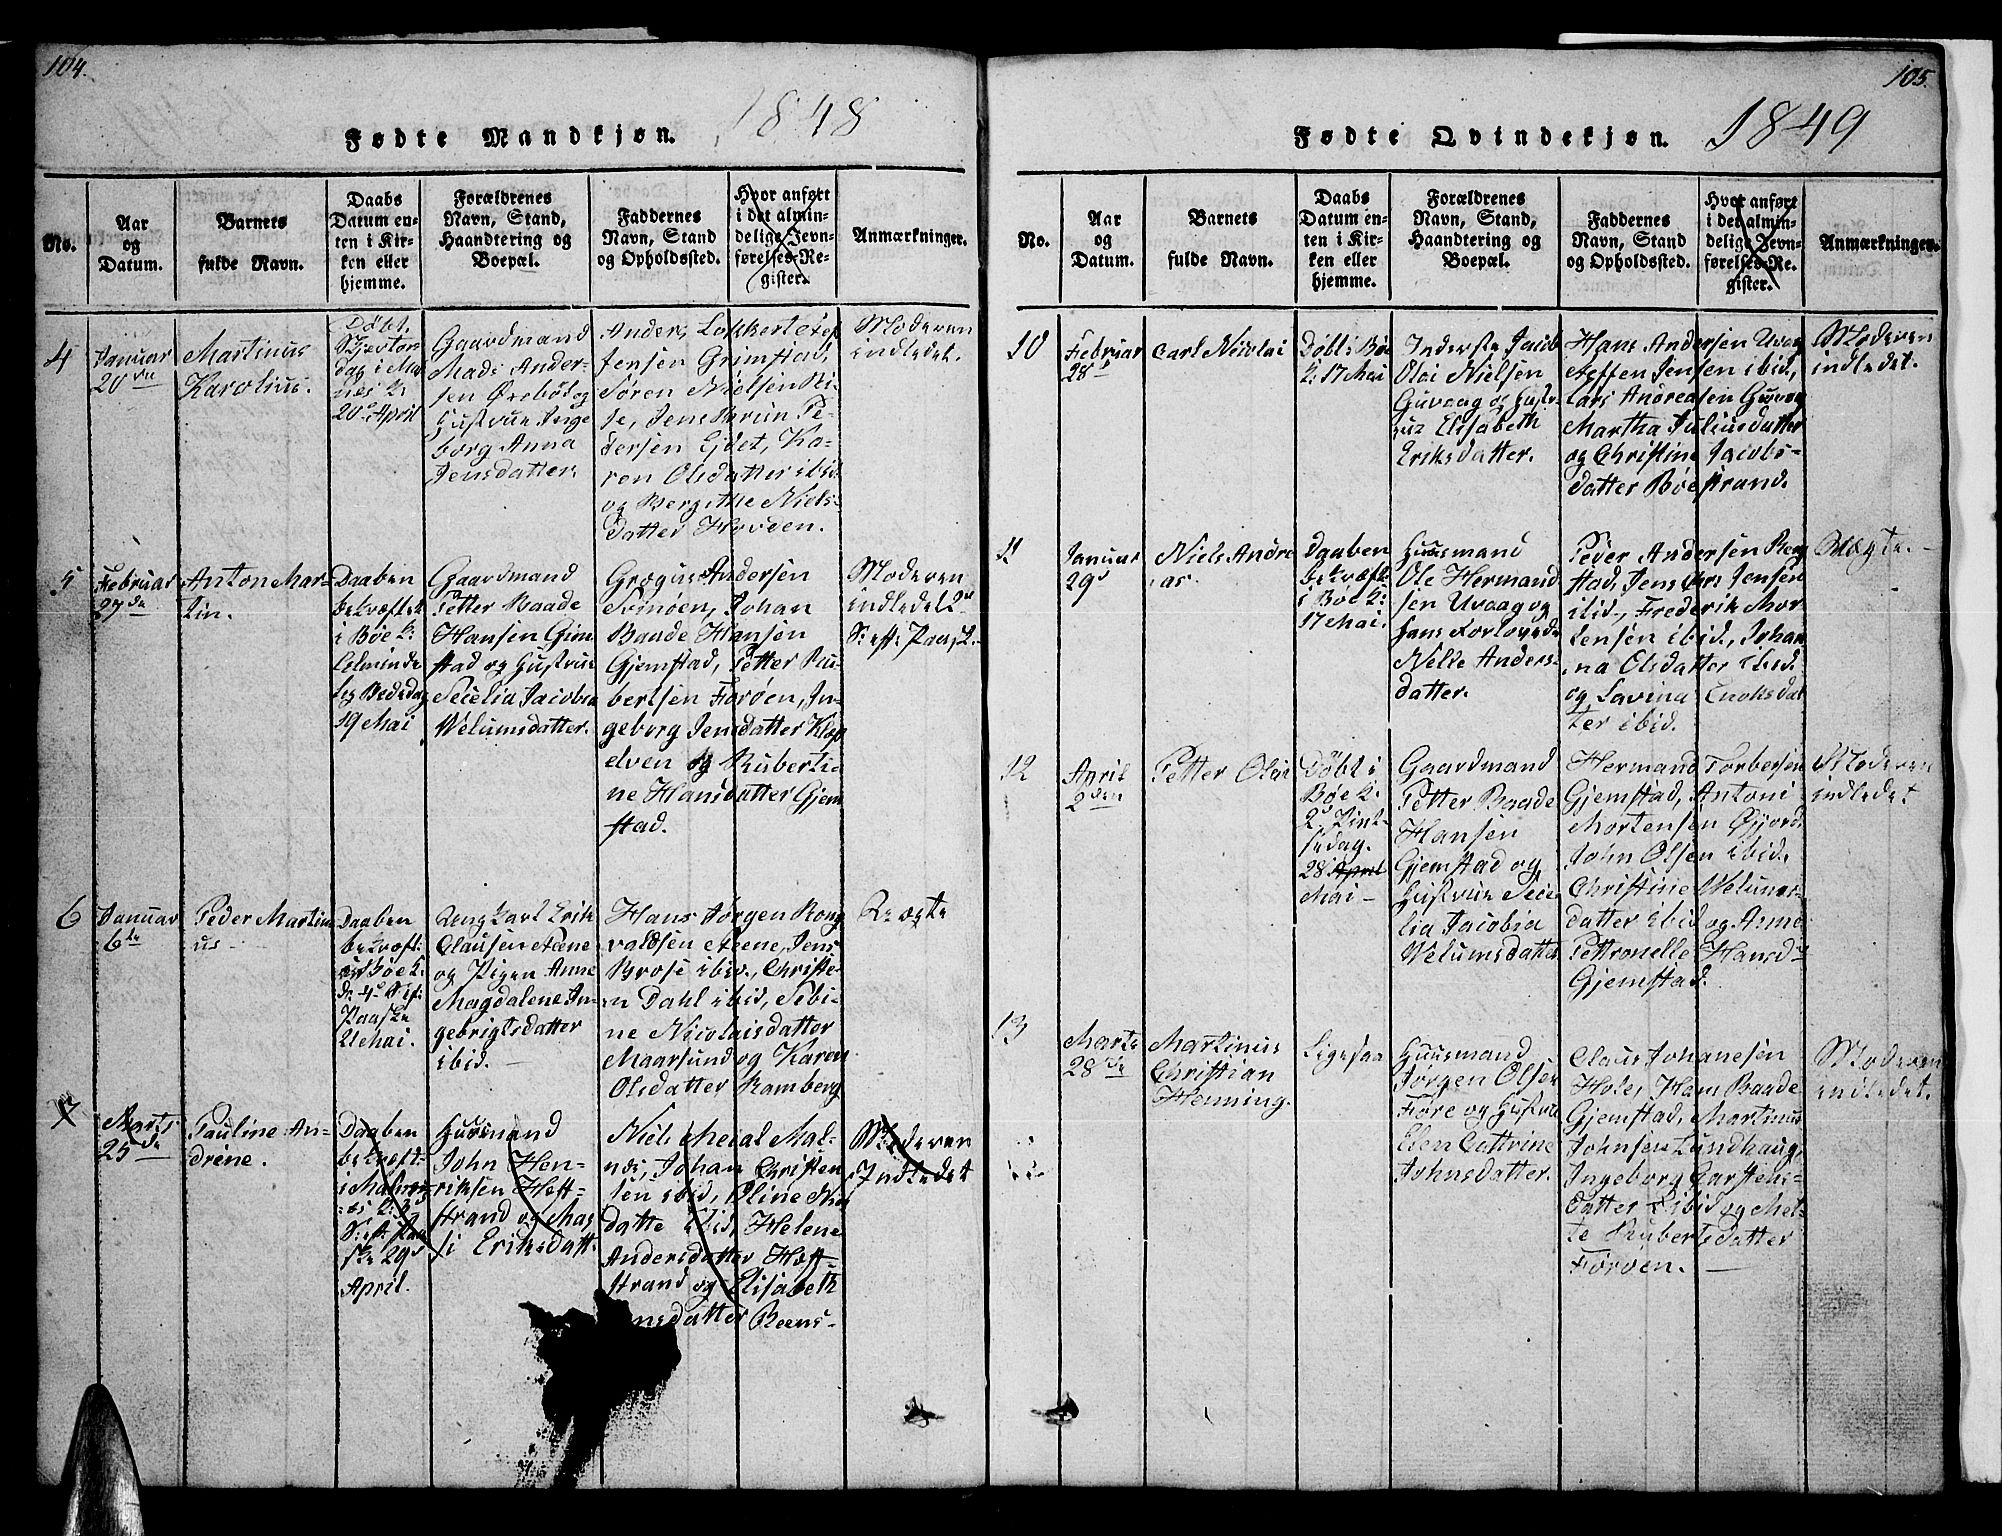 104.
Fødte Mandkjøn. 1848
No.
Aar
og
Datum.
Barnets
fulde Navn.
Daabs
Datum en-
ten i Kir-
ken eller
hjemme.
Forældrenes
Navn, Stand,
Haandtering og
Boepæl.
Faddernes
Navn, Stand
og Opholdssted.
Hvor anført
i det almin-
delige Jevn-
førelses-Re-
gister.
Anmærkninger.
4
Januar
20de
Martinus
Karolius.
Døbt
Skjærtors
dag i Mal
næs K:
20de April
Gaardmand
Mads Ander-
sen Øxebøl og
Hustrue Inge
borg Anna
Jensdatter.
Anders
Jensen Grimstad,
Søren Nielsen Ri-
se, Jens Bruun Pe-
dersen Ejdet, Ka-
ren Olsdatter ibid
og Bergithe Niels-
datter Hovden.
Moderen
indledet.
5
Februar
27de
Anton Mar-
tin.
Daaben
bekræftet
i Bøe K:
Almindel
lig Bededag
19 Mai
Gaardmand
Petter Baade
Hansen Gjem
stad og Hustrue
Secelia Jacobia
Welumsdatter.
Grægus Andersen
Svinøen, Johan
Baade Hansen
Gjemstad, Petter Ru-
bertsen Forøen, In-
geborg Jensdatter Kløp
elven og Ruberti-
ne Hansdatter Gjem
stad.
Moderen
indledet 2den
S: eft: Paask.
6
Januar
6te
Peder Martin
us
Daaben
bekræft:
i Bøe K:
d: 4de S: ef:
Paaske
21 Mai.
Ungkarl Erik
Clausen Steene
og Pigen Anne
Magdalene In-
gebrigtsdatter
ibid.
Hans Jørgen Rong
valdsen Steene, Jens
Brose ibid, Christe-
n Dahl ibid, Sebi-
ne Nicolaisdatter
Maarsund og Karen
Olsdatter Ramberg
Uægte
7
Marts
25de
Pauline An-
drene.
Daaben
bekræft-
i Malnæ-
es K: 3de
S: eft: Paa
ske 29de
April.
Huusmand
John Hen-
riksen Høft-
strand og Mas
si Eriksdatt.
Niels Meial Mal-
næs, Johan Christen
sen ibid, Oline Nils
datte ibid, Helene
Andersdatter Høft-
strand og Elisabeth
Jensdatter Reens-
Moderen
Indledet
105.
Fødte Qvindekjøn. 1849
No.
Aar
og
Datum.
Barnets
fulde Navn.
Daabs
Datum en-
ten i Kir-
ken eller
hjemme.
Forældrenes
Navn, Stand,
Haandtering og
Boepæl.
Faddernes
Navn, Stand
og Opholdssted.
Hvor anført
i det almin-
delige Jevn-
førelses-Re-
gister.
Anmærkninger.
10
Februar
28de
Carl Nicolai
Døbt i Bøe
K: 17 Mai
Inderste Jacob
Olai Nielsen
Guvaag og Hust-
rue Elisabeth
Eriksdatter.
Hans Andersen Uvaag
Steffen Jensen ibid,
Lars Andreasen Guvaag
Martha Juliusdatter
og Christine Jacobs-
datter Bøestrand.
Moderen
indledet.
11
Januar
29de
Niels Andre
as.
Daaben
bekræft:
i Bøe K:
17 Mai.
Huusmand
Ole Hermand
sen Uvaag og
hans Forlovede
Nille Anders-
datter.
Peder Andersen Berg
stad, Jens Chrs Jensen
ibid, Frederik Mor
tensen ibid, Johan
na Olsdatter ibid
og Lavina Enoksdat
ter ibid.
Uægte.
12
April
2den
Petter Olai
Døbt i
Bøe K:
2d Pint-
sedag.
28 April
Mai
Gaardmand
Petter Baade
Hansen
Gjemstad og
Hustrue Sece-
lia Jacobia
Welumsdatter
Hermand Torbersen
Gjemstad, Antoni
Mortensen Gjord,
John Olsen ibid,
Christine Welums-
datter ibid og Anne
Petronelle Hansd
Gjemstad.
Moderen
indledet
13
Marts
28de
Martinus
Christian
Henning.
Ligesaa
Huusmand
Jørgen Olsen
Føre og Hustrue
Elen Cathrine
Johnsdatter.
Claus Johanesen
Hole, Hans Baade
Gjemstad, Martinus
Johnsen Lundhaug,
Ingeborg Carstens-
datter ibid og Met-
te Rubertsdatter
Førøen.
Moderen
indledet.